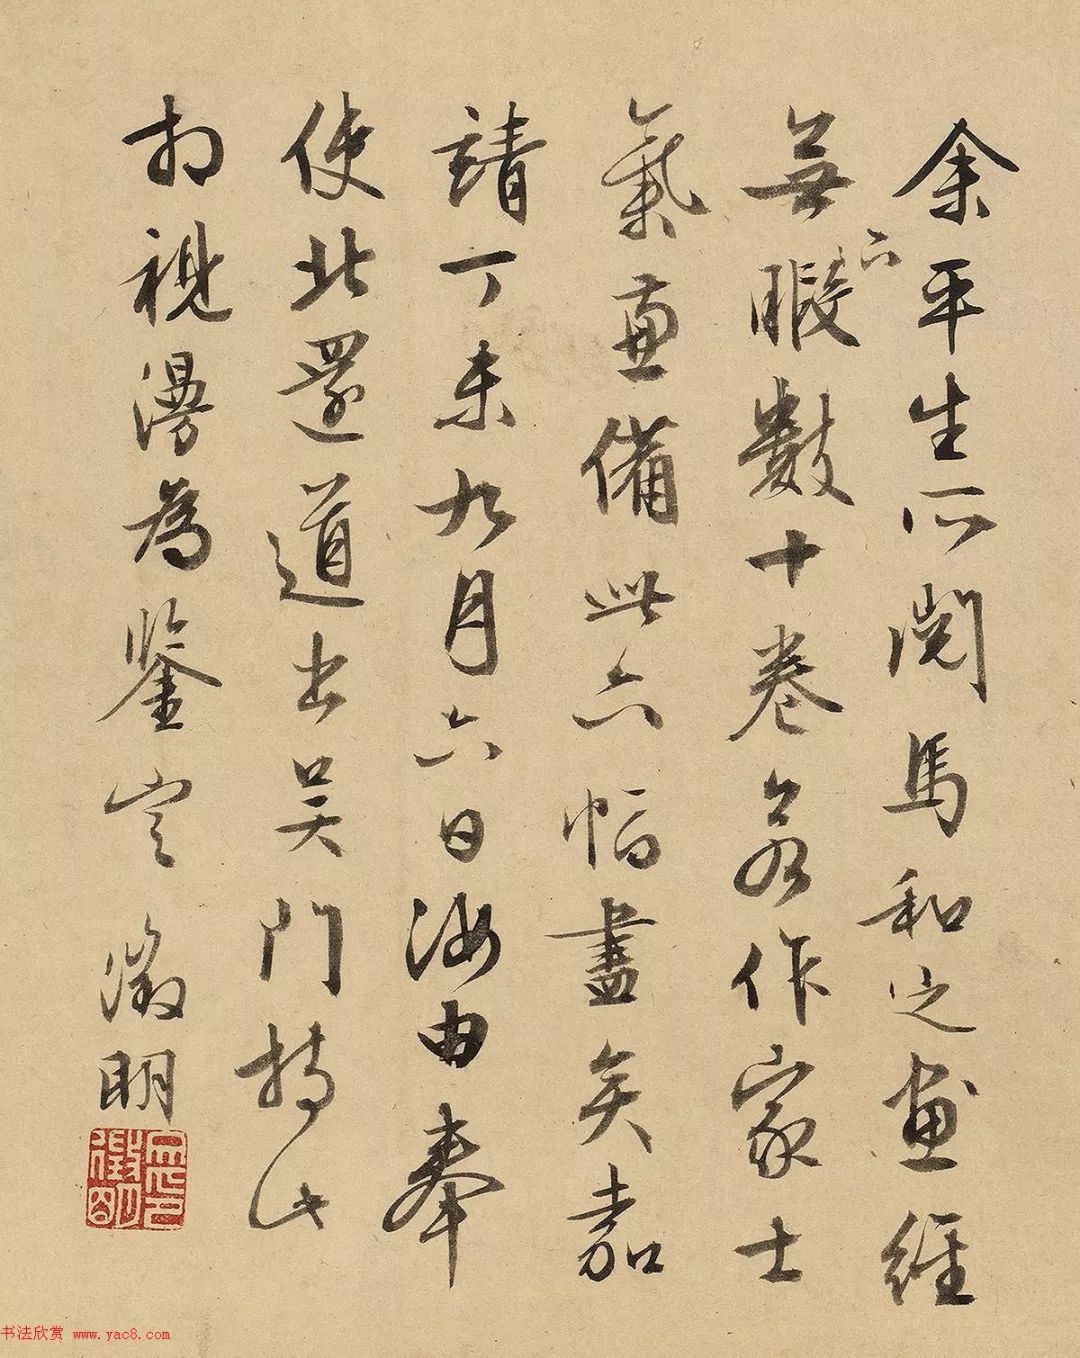 余平生所閱馬和之畫經
無下暇數十卷若作家士
氣兼備此六幅盡矣嘉
靖丁未九月六日海由奉
使北還道出吴門持此
相視漫為鑒定 徵明
徵明
书法欣赏 www.yac8.com